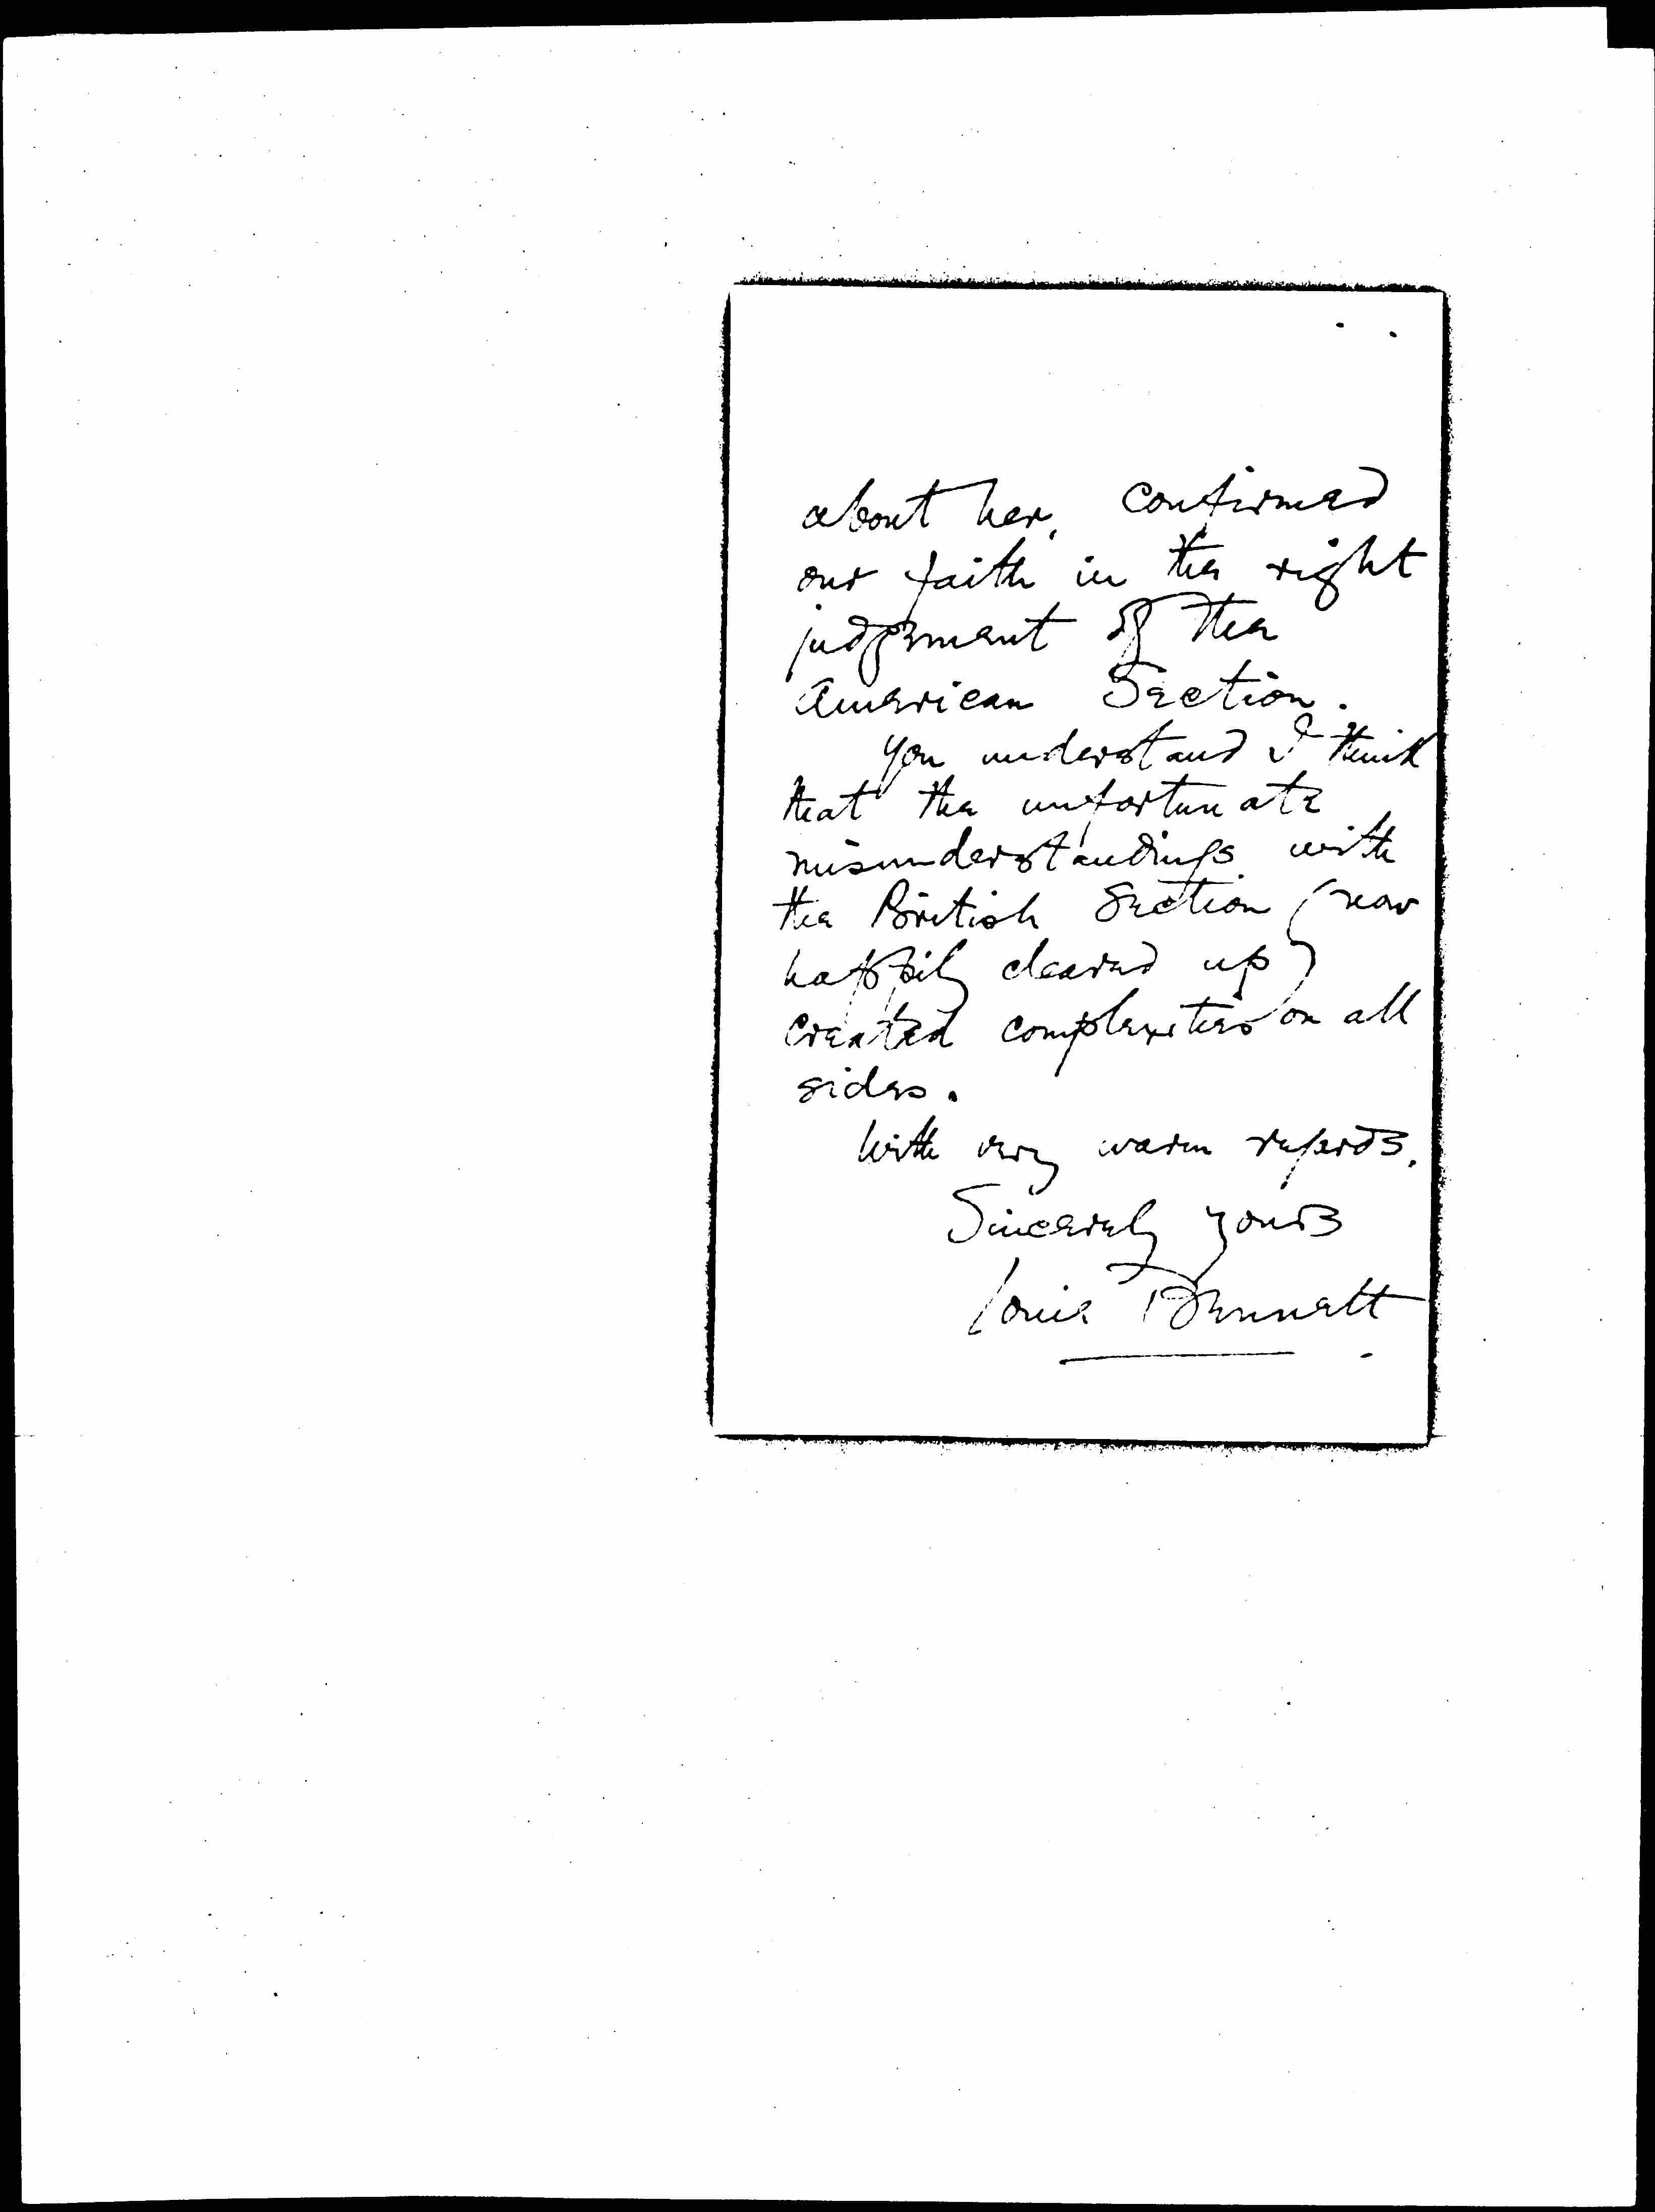 about her, confirmed
our faith in the right
judgement of the
American Section.
You understand I think
that the unfortunate
misunderstandings with
the British Section (now
happily cleared up)
created complexities on all
sides.
With very warm regards.
Sincerely yours
Louie Bennett